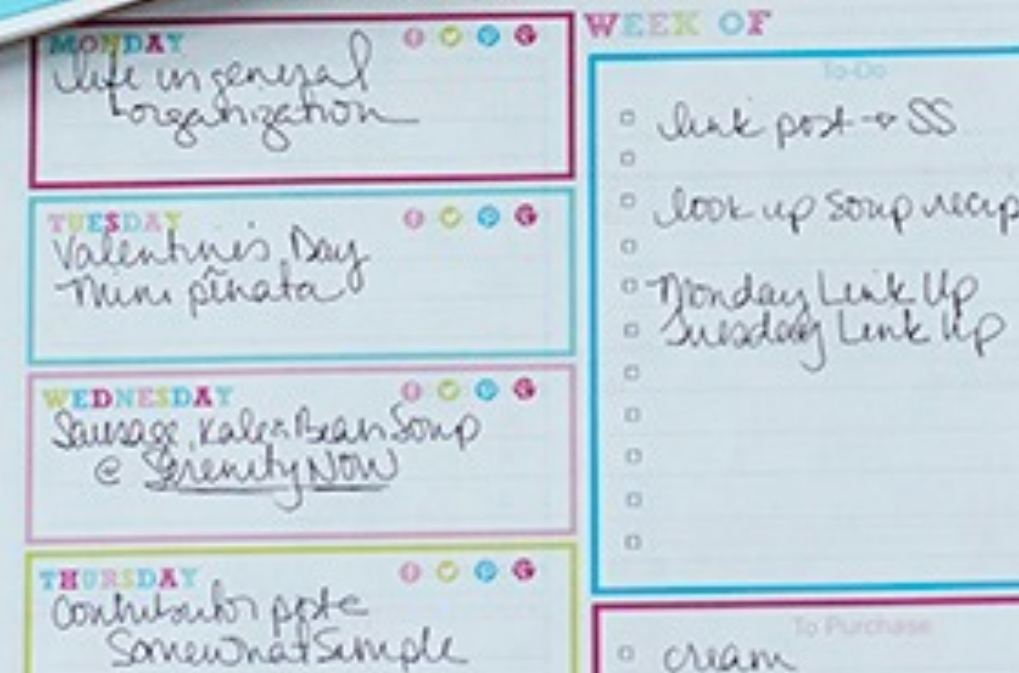 MONDAY
life in general
organization
TUESDAY
Valentine's Day
Mini piñata
WEDNESDAY
Sausage, Kale & Bean Soup
@ Serenity Now
THURSDAY
Contributor post
Somewhat Simple
WEEK OF
To-Do
link post → SS
look up soup recip
Monday Link Up
Tuesday Link Up
To Purchase
cream